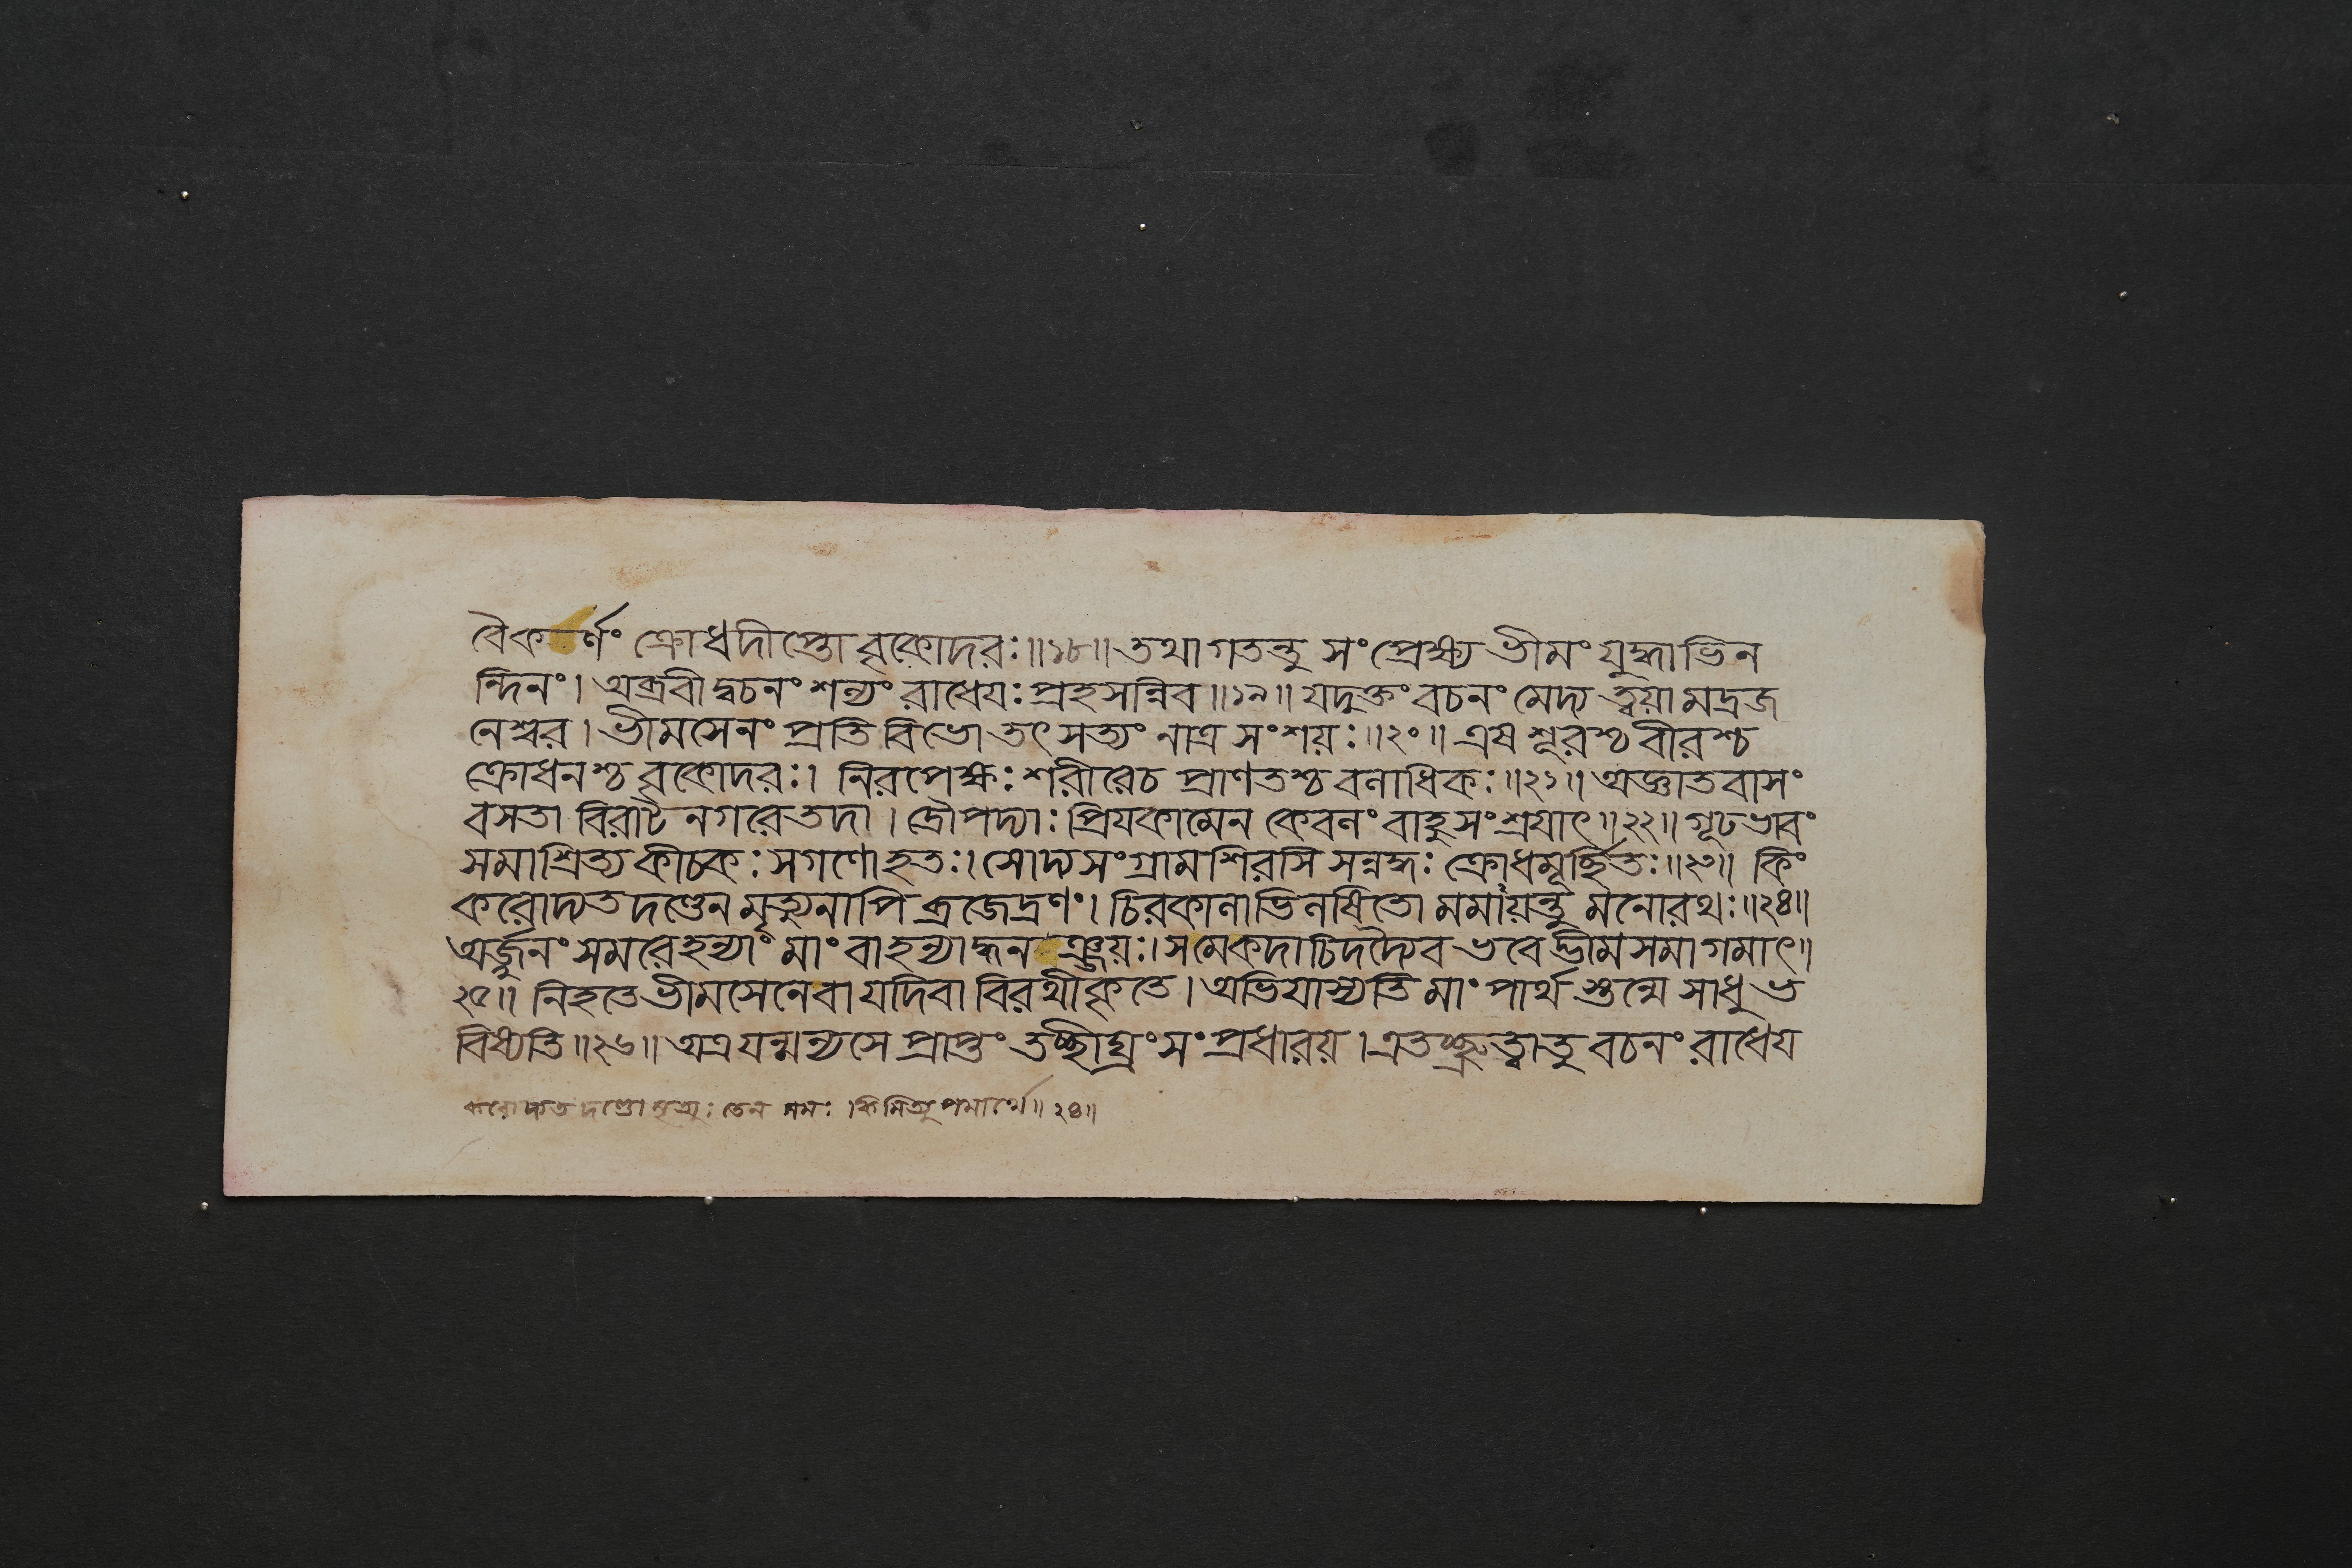 বৈকর্ণং ক্রোধদীপ্তো বৃকোদরঃ॥১৮॥ তথাগতন্তু সংপ্রেক্ষ্য ভীমং যুদ্ধাভিন
ন্দিনং। অব্রবীদ্বচনং শল্যং রাধেযঃ প্রহসন্নিব॥১৯॥ যদুক্তং বচনং মেদ্য ত্বয়া মদ্রজ
নেশ্বর। ভীমসেনং প্রতি বিভো তৎ সত্যং নাত্র সংশয়ঃ॥২০॥ এষ শূরশ্চ বীরশ্চ
ক্রোধনশ্চ বৃকোদরঃ। নিরপেক্ষঃ শরীরেচ প্রাণতশ্চ বলাধিকঃ॥২১॥ অজ্ঞাতবাসং
বসতা বিরাট নগরে তদা। দ্রৌপদ্যাঃ প্রিযকামেন কেবলং বাহুসংশ্রযাৎ॥২২॥ গূঢভাবং
সমাশ্রিত্য কীচকঃ সগণোহতঃ। সোদ্য সংগ্রামশিরসি সন্নদ্ধঃ ক্রোধমূর্চ্ছিতঃ॥২৩॥ কিং
করোদ্যতদণ্ডেন মৃত্যুনাপি ব্রজেদ্রণং। চিরকালাভিলষিতো মমায়ন্তু মনোরথঃ॥২৪॥
অর্জ্জুনং সমরে হন্যাং মাং বা হন্যাদ্ধনঞ্জয়ঃ। সমেকদাচিদদ্যৈব ভবেদ্ভীমসমাগমাৎ॥
২৫॥ নিহতে ভীমসেনে বা যদিবা বিরথীকৃতে। অভিযাস্যতি মাং পার্থ স্তন্মে সাধু ভ
বিষ্যতি॥২৬॥ অত্র যন্মন্যসে প্রাপ্তং তচ্ছীঘ্রং সংপ্রধারয়। এতচ্ছ্রুত্বাতু বচনং রাধেয
করোদ্যতদণ্ডো মৃত্যুঃ তেন সমঃ। কিমিত্যুপমার্থে॥২৪॥